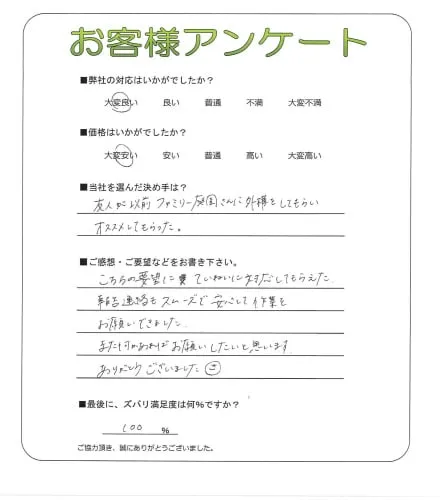 お客様アンケート
■弊社の対応はいかがでしたか?
大変良い 良い 普通 不満 大変不満
■価格はいかがでしたか?
大変安い 安い 普通 高い 大変高い
■当社を選んだ決め手は?
友人が以前ファミリー庭園さんに外構をしてもらい
オススメしてもらった。
■ご感想・ご要望などをお書き下さい。
こちらの要望に ていねいに対応してもらえた
報告連絡もスムーズで安心して作業を
お願いできました
また何かあればお願いしたいと思います
ありがとうございました
■最後に、ズバリ満足度は何%ですか?
100 %
ご協力頂き、誠にありがとうございました。